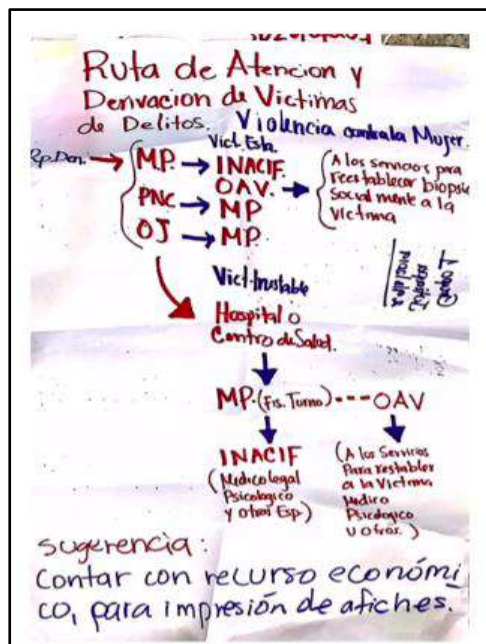 Ruta de Atencion y
Derivacion de Victimas
de Delitos. Violencia contra la Mujer.
Vict. Esta.
Rp. Den. → M.P. → INACIF.
OAV. →
PNC → MP
OJ → MP.
A los servicios para
reestablecer biopsico
social mente a la
victima
Vict. Inestable
Hospital o
Centro de Salud.
MP. (Fis. Turno) --- OAV
INACIF
(Medico legal
Psicologico
y otros Esp.)
(A los Servicios
Para restabler
a la Victima
Medico
Psicologico
u otros.)
sugerencia:
Contar con recurso económi
co, para impresión de afiches.